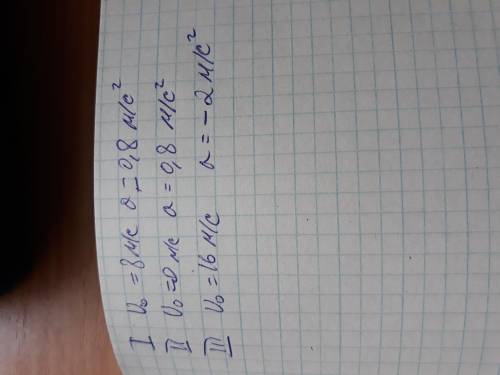 I U₀ = 8 м/с a = 0,8 м/с²
II U₀ = 0 м/с a = 0,8 м/с²
III U₀ = 16 м/с a = -2 м/с²